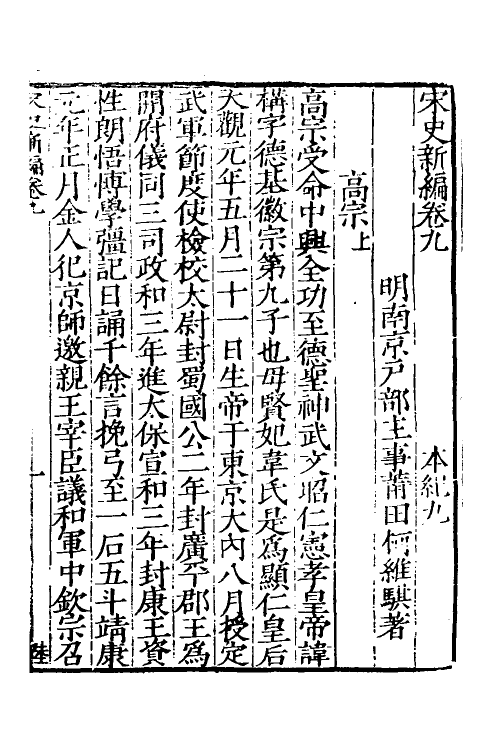 宋史新編卷九 本紀九
明南京戸部主事莆田何維騏著
高宗上
高宗受命中興全功至德聖神武文昭仁憲孝皇帝諱
構字德基徽宗第九子也母賢妃韋氏是爲顯仁皇后
大觀元年五月二十一日生帝于東京大內八月授定
武軍節度使檢校太尉封蜀國公二年封廣平郡王爲
開府儀同三司政和三年進太保宣和三年封康王資
性朗悟博學彊記日誦千餘言挽弓至一石五斗靖康
元年正月金人犯京師邀親王宰臣議和軍中欽宗召
宋史新編卷九 一